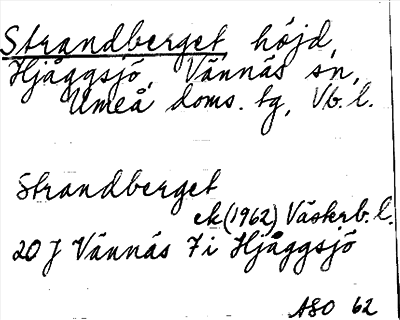 Strandberget höjd,
Hjåggsjö, Vännäs sn,
Umeå doms. tg, Vb. l.
Strandberget
ek (1962) Västerb. l.
20 J Vännäs 7i Hjåggsjö
ASO 62